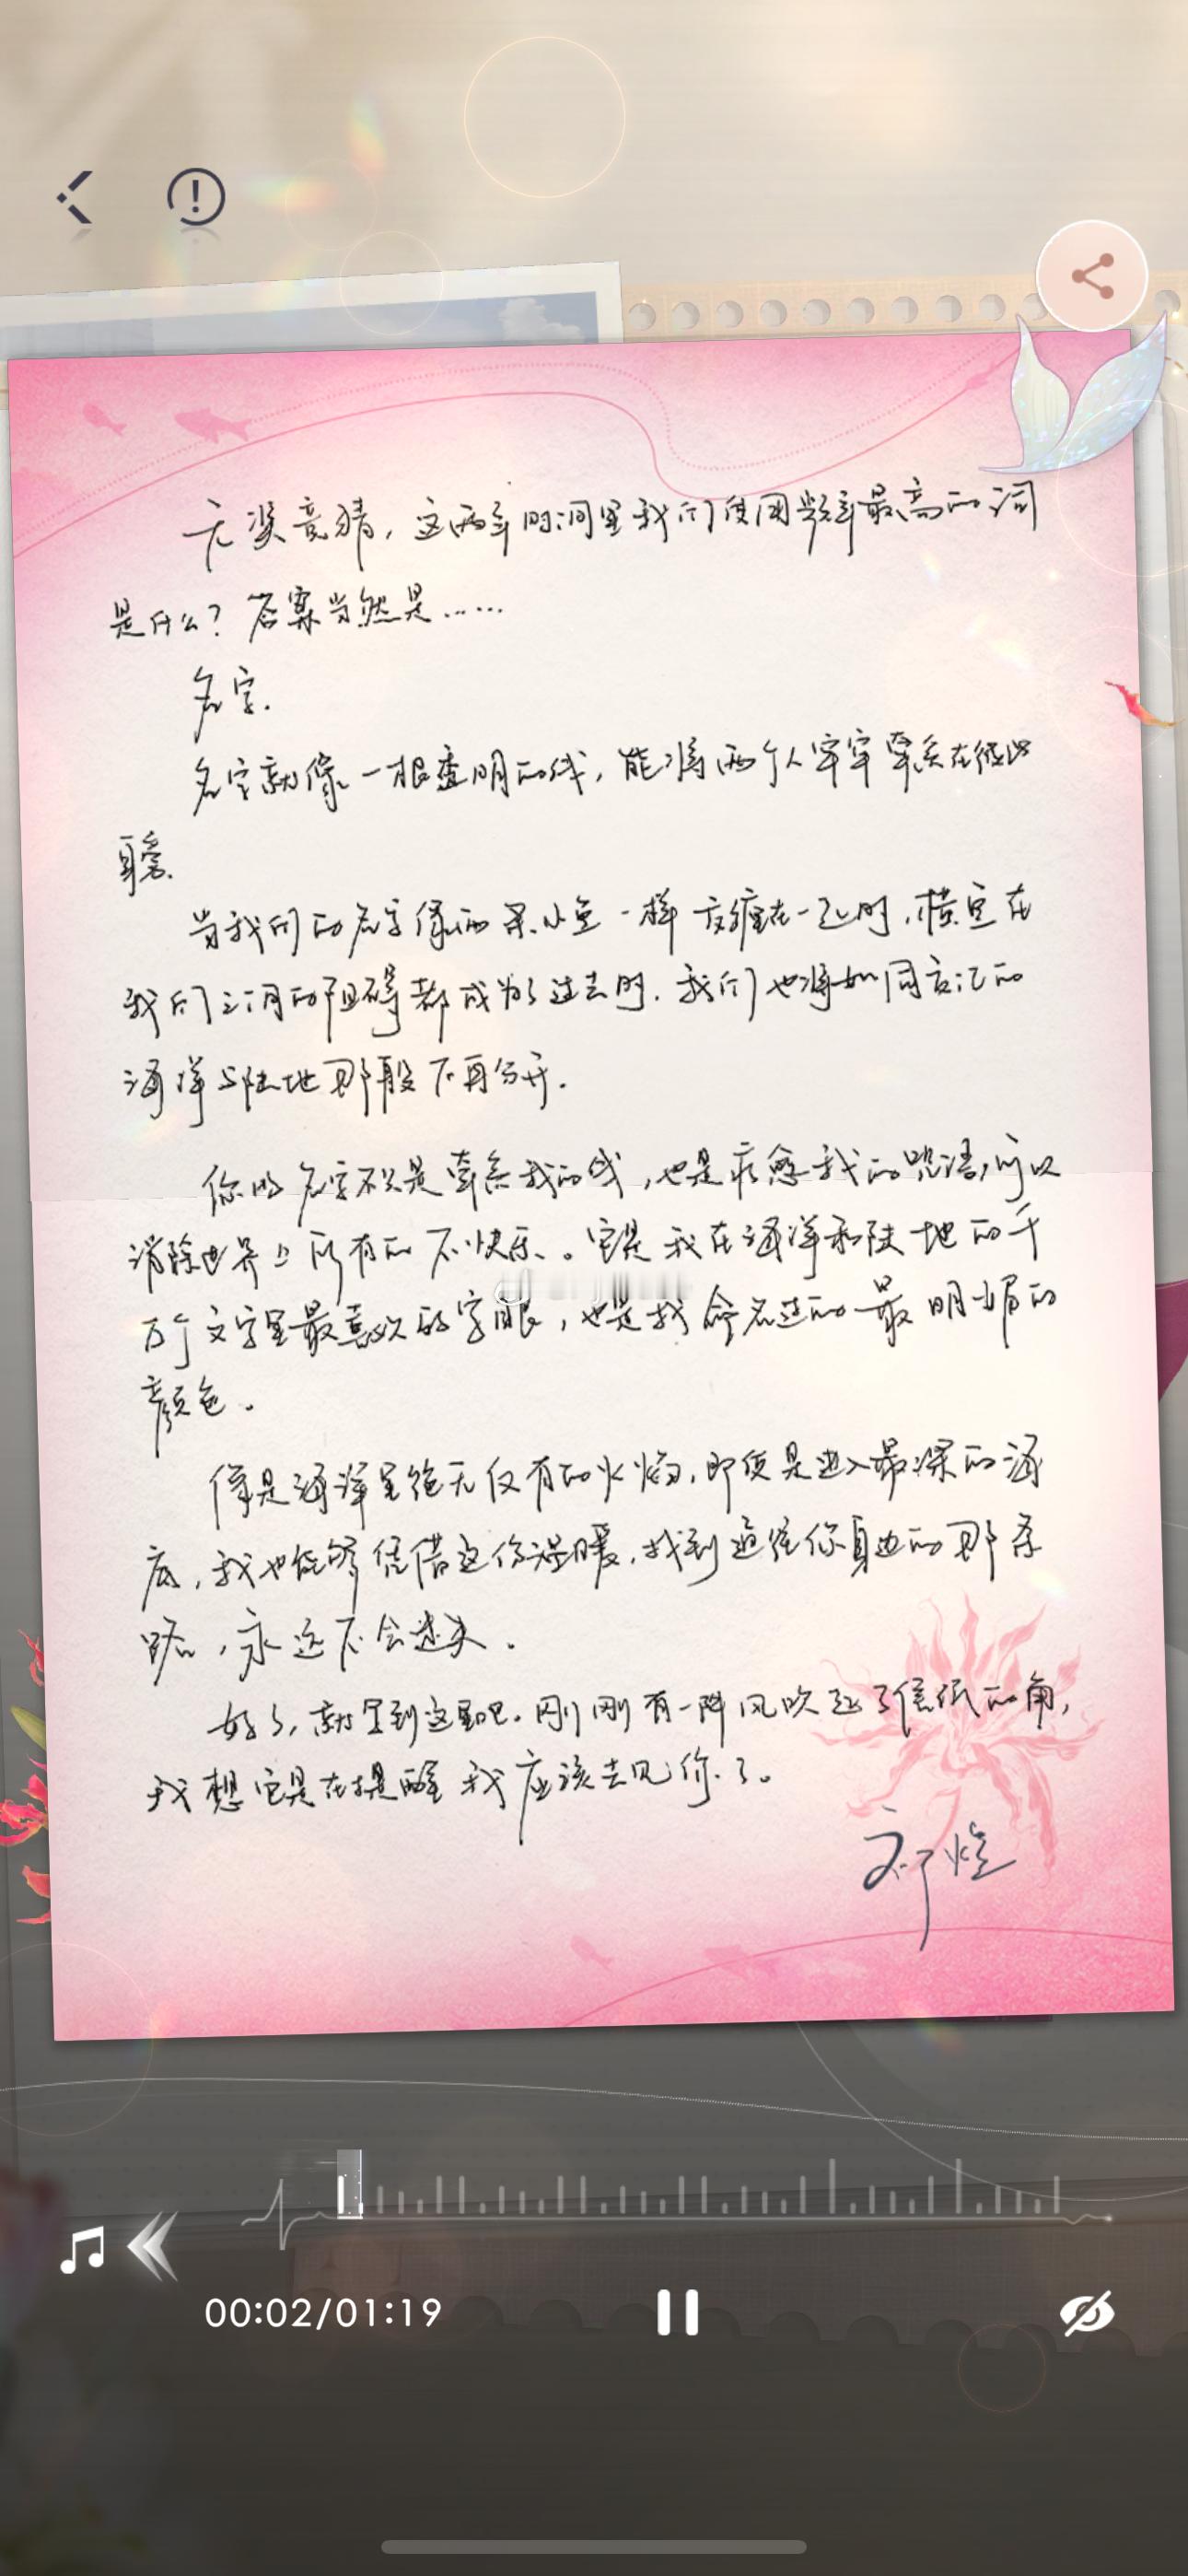 有奖竞猜，这两年时间里我们使用频率最高的词
是什么？答案当然是……
名字.
名字就像一根透明的线，能将两个人牢牢牵系在彼此
身旁.
当我们的名字像两条小鱼一样交缠在一起时，横亘在
我们之间的阻碍都成为了过去时.我们也将如同交汇的
海洋与陆地那般不再分开.
你的名字不只是牵系我的线，也是疗愈我的咒语，可以
消除世界上所有的不快乐。它是我在海洋和陆地的千
万个文字里最喜欢的字眼，也是我命名过的最明媚的
颜色。
像是海洋里绝无仅有的火焰，即使是进入最深的海
底，我也能够凭借这份温暖，找到通往你身边的那条
路，永远不会迷失.
好了，就写到这里吧.刚刚有一阵风吹起了信纸的角，
我想它是在提醒我应该去见你了。
祁煜
00:02/01:19